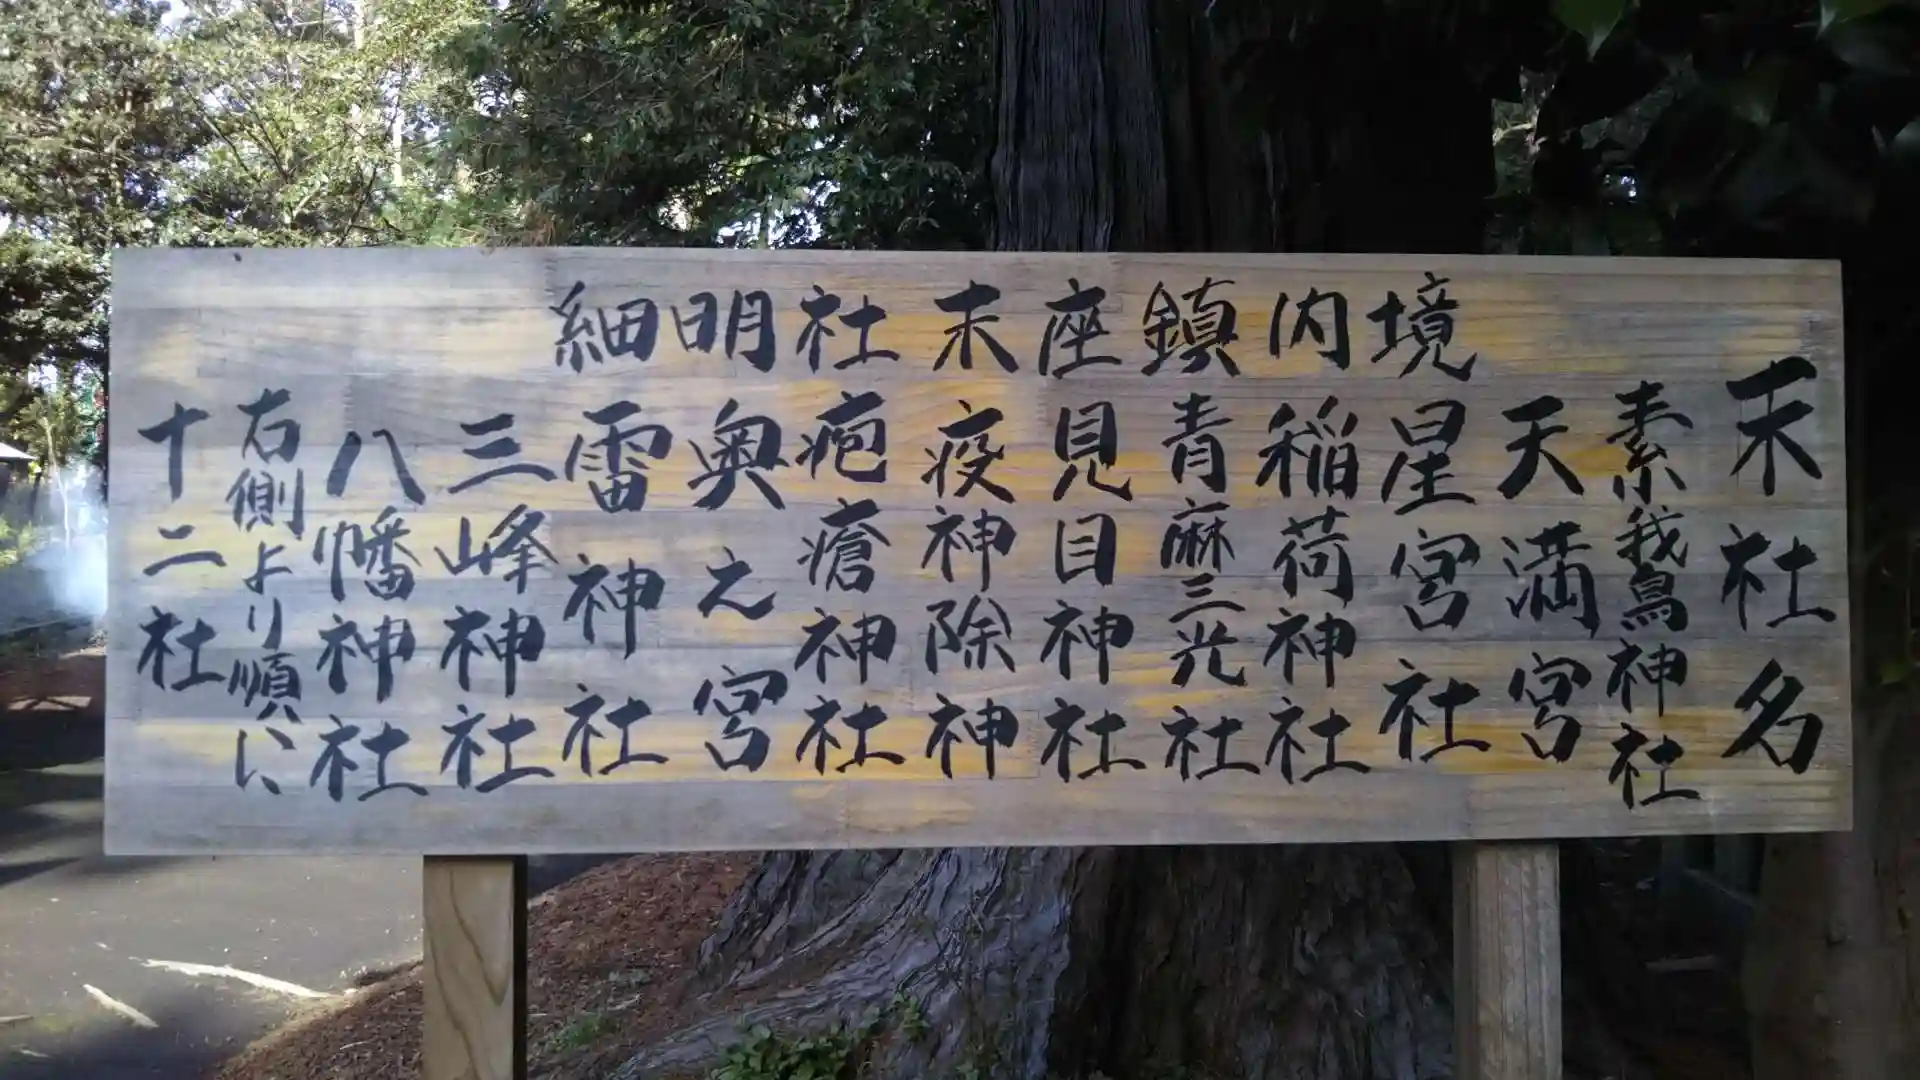 境内鎮座末社明細
末社名
素我鳥神社
天満宮
星宮社
稲荷神社
青麻三光社
見目神社
疫神除神
疱瘡神社
奥之宮
雷神社
三峰神社
八幡神社
右側より順に
十二社